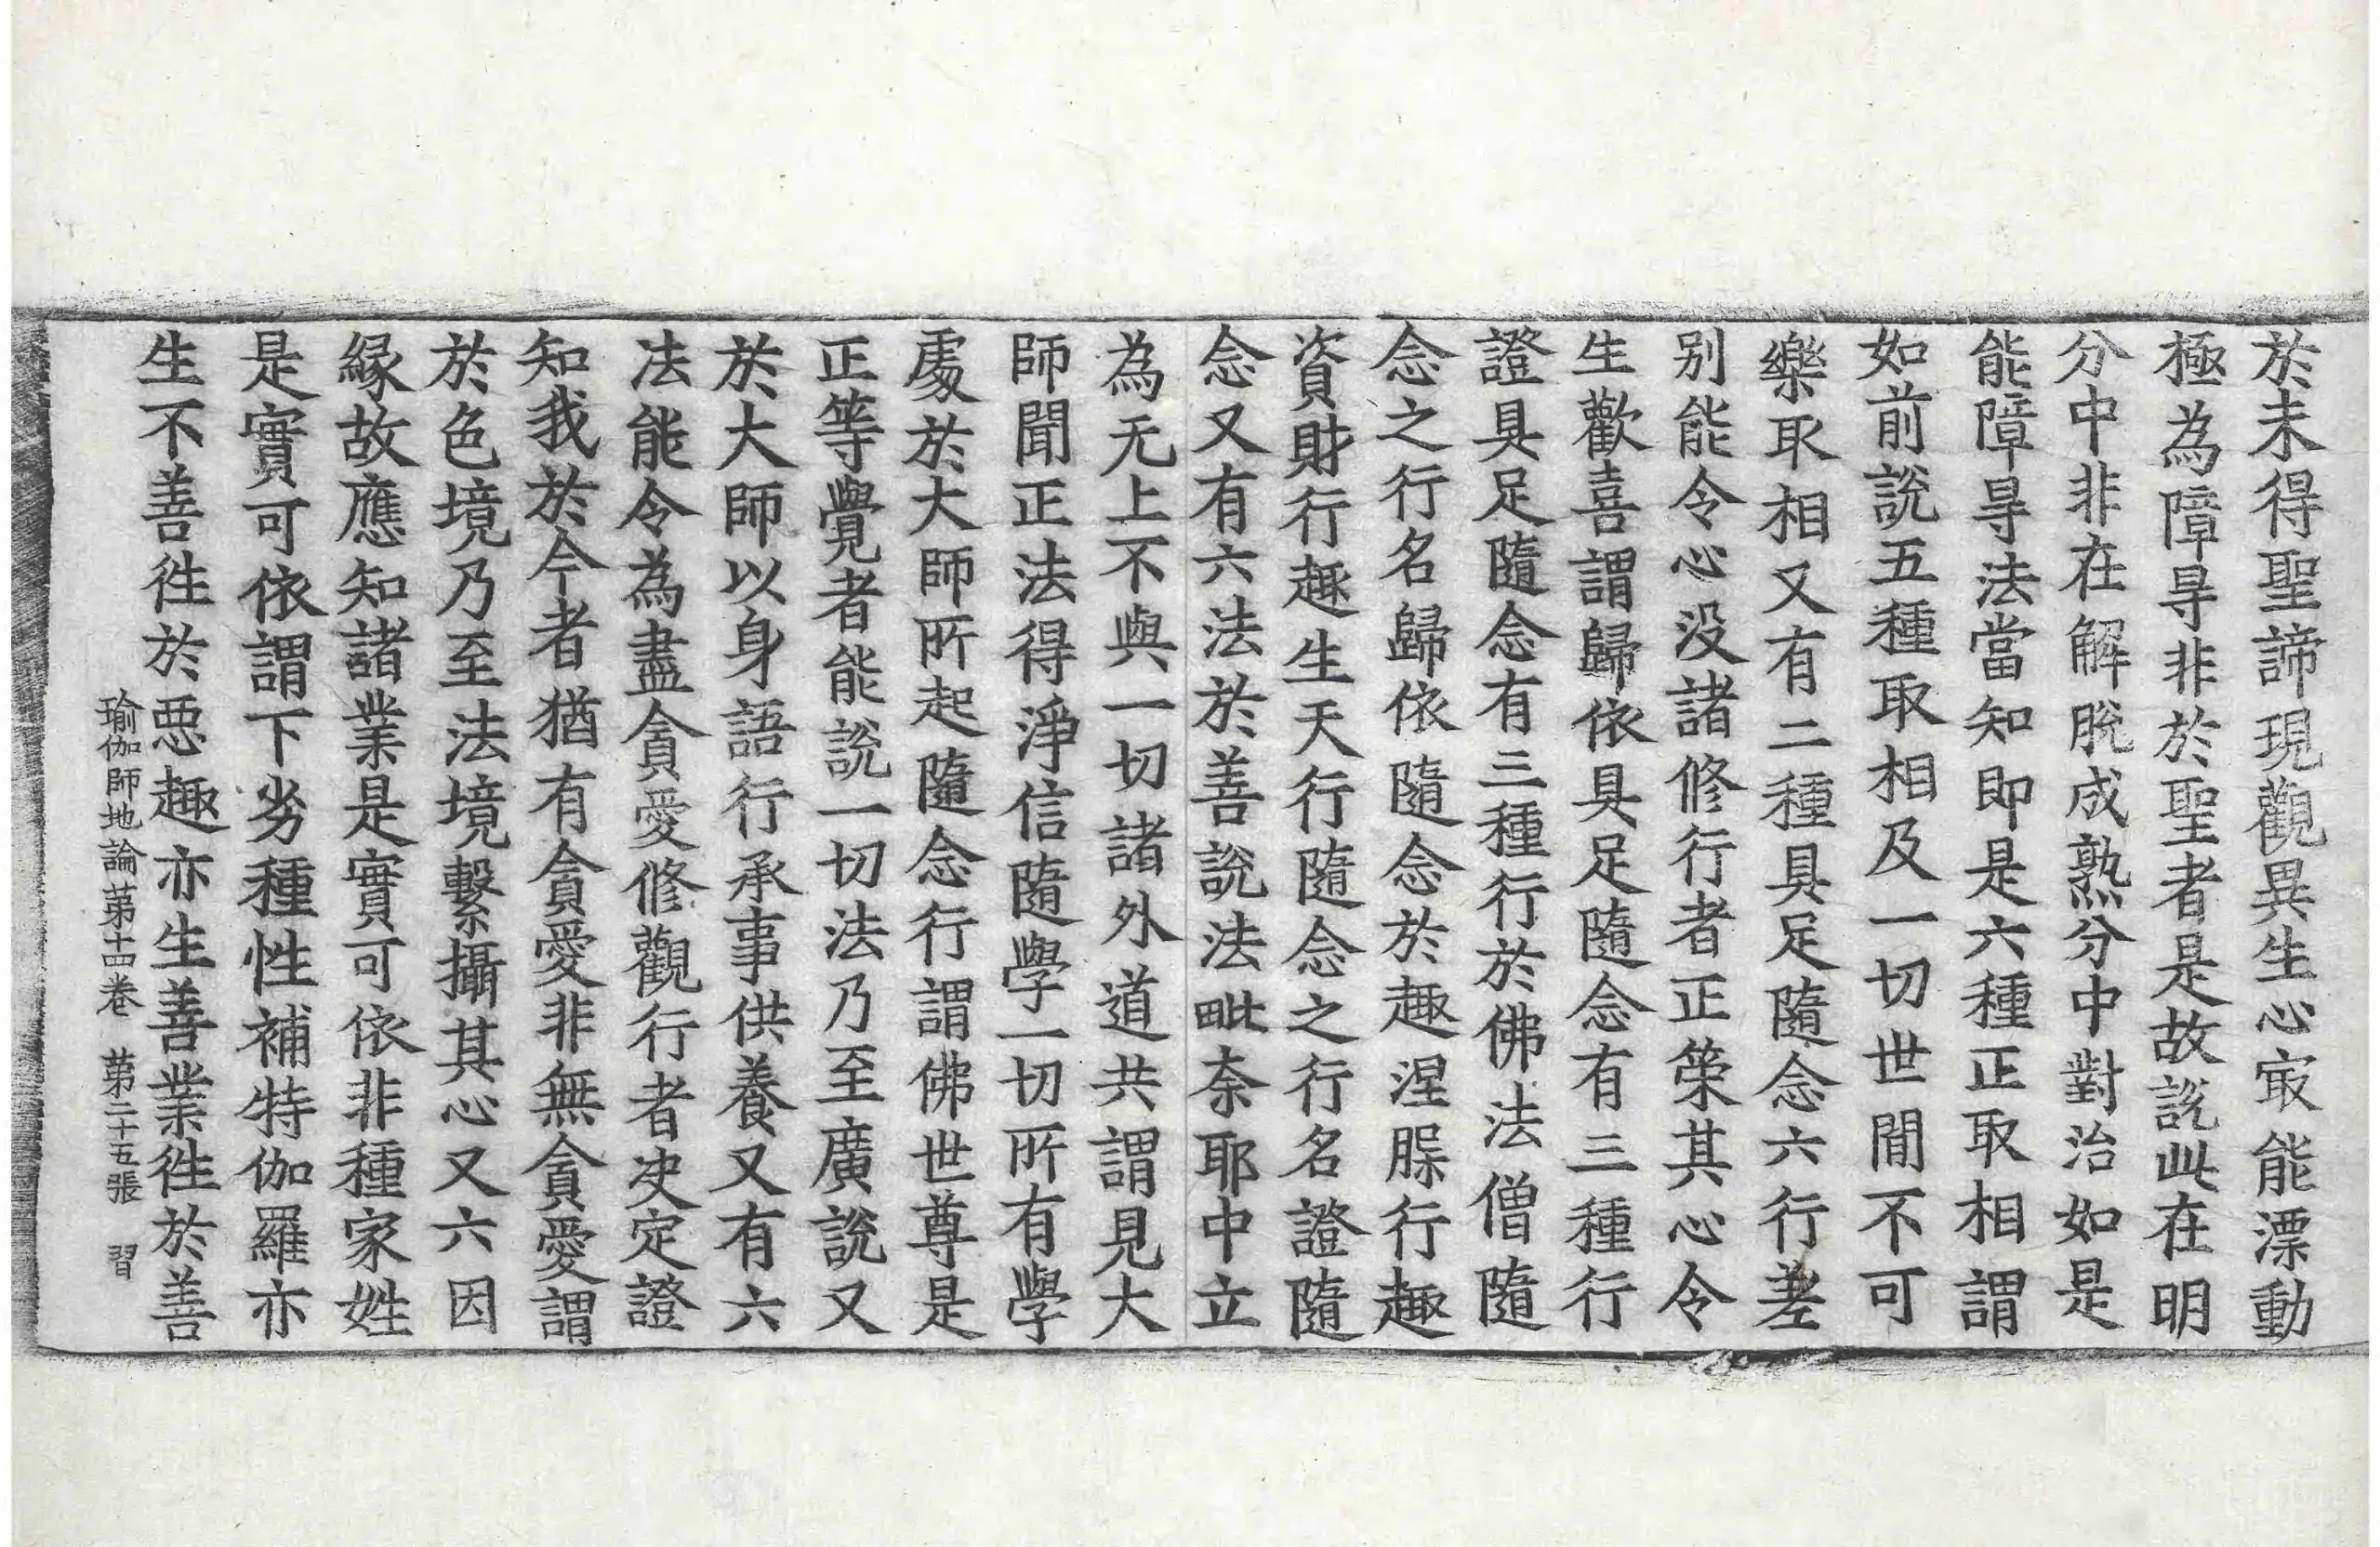 於未得聖諦現觀異生心㝡能漂動
極為障㝵非於聖者是故說此在明
分中非在解脫成熟分中對治如是
能障㝵法當知即是六種正取相謂
如前說五種取相及一切世間不可
樂取相又有二種具足隨念六行差
別能令心没諸修行者正策其心令
生歡喜謂歸依具足隨念有三種行
證具足隨念有三種行於佛法僧隨
念之行名歸依隨念於趣涅脲行趣
資財行趣生天行隨念之行名證隨
念又有六法於善說法毗奈耶中立
為无上不與一切諸外道共謂見大
師聞正法得淨信隨學一切所有學
處於大師所起隨念行謂佛世尊是
正等覺者能說一切法乃至廣說又
於大師以身語行承事供養又有六
法能令為盡貪愛修觀行者决定證
知我於今者猶有貪愛非無貪愛謂
於色境乃至法境繫攝其心又六因
緣故應知諸業是實可依非種家姓
是實可依謂下劣種性補特伽羅亦
生不善徃於惡趣亦生善業徃於善
瑜伽師地論苐十四卷 苐二十五張 習